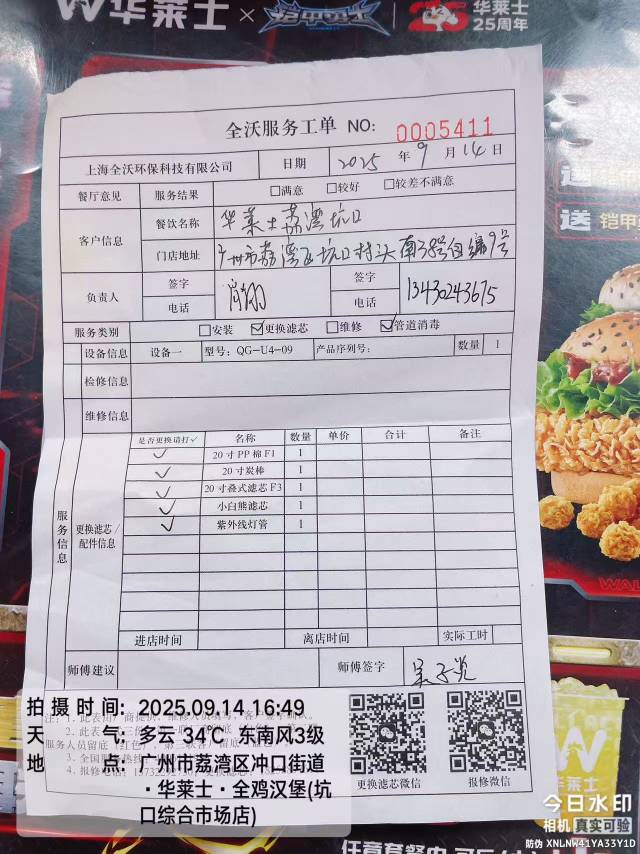 华莱士 × 铠甲勇士 华莱士 25周年
全沃服务工单 NO: 0005411
上海全沃环保科技有限公司 日期 2025 年 9 月 14 日
餐厅意见 服务结果 □满意 □较好 □较差不满意
客户信息 餐饮名称 华莱士荔湾坑口
门店地址 广州市荔湾区坑口村头南 编9号
负责人 签字 签字
电话 电话 13430243675
服务类别 □安装 ☑更换滤芯 □维修 ☑管道消毒
设备信息 设备一 型号: QG-U4-09 产品序列号: 数量 1
检修信息
维修信息
服务信息
更换滤芯/配件信息
是否更换请打✓ 名称 数量 单价 合计 备注
✓ 20寸PP棉F1 1
✓ 20寸炭棒 1
✓ 20寸叠式滤芯F3 1
✓ 小白熊滤芯 1
✓ 紫外线灯管 1
进店时间 离店时间 实际工时
师傅建议 师傅签字
更换滤芯微信 报修微信
拍摄时间: 2025.09.14 16:49
天气: 多云 34℃ 东南风3级
地点: 广州市荔湾区冲口街道
·华莱士·全鸡汉堡(坑
口综合市场店)
送
送 铠甲
W
华莱士
今日水印
相机 真实可验
防伪 XNLNW41YA33Y1D
任意套餐中